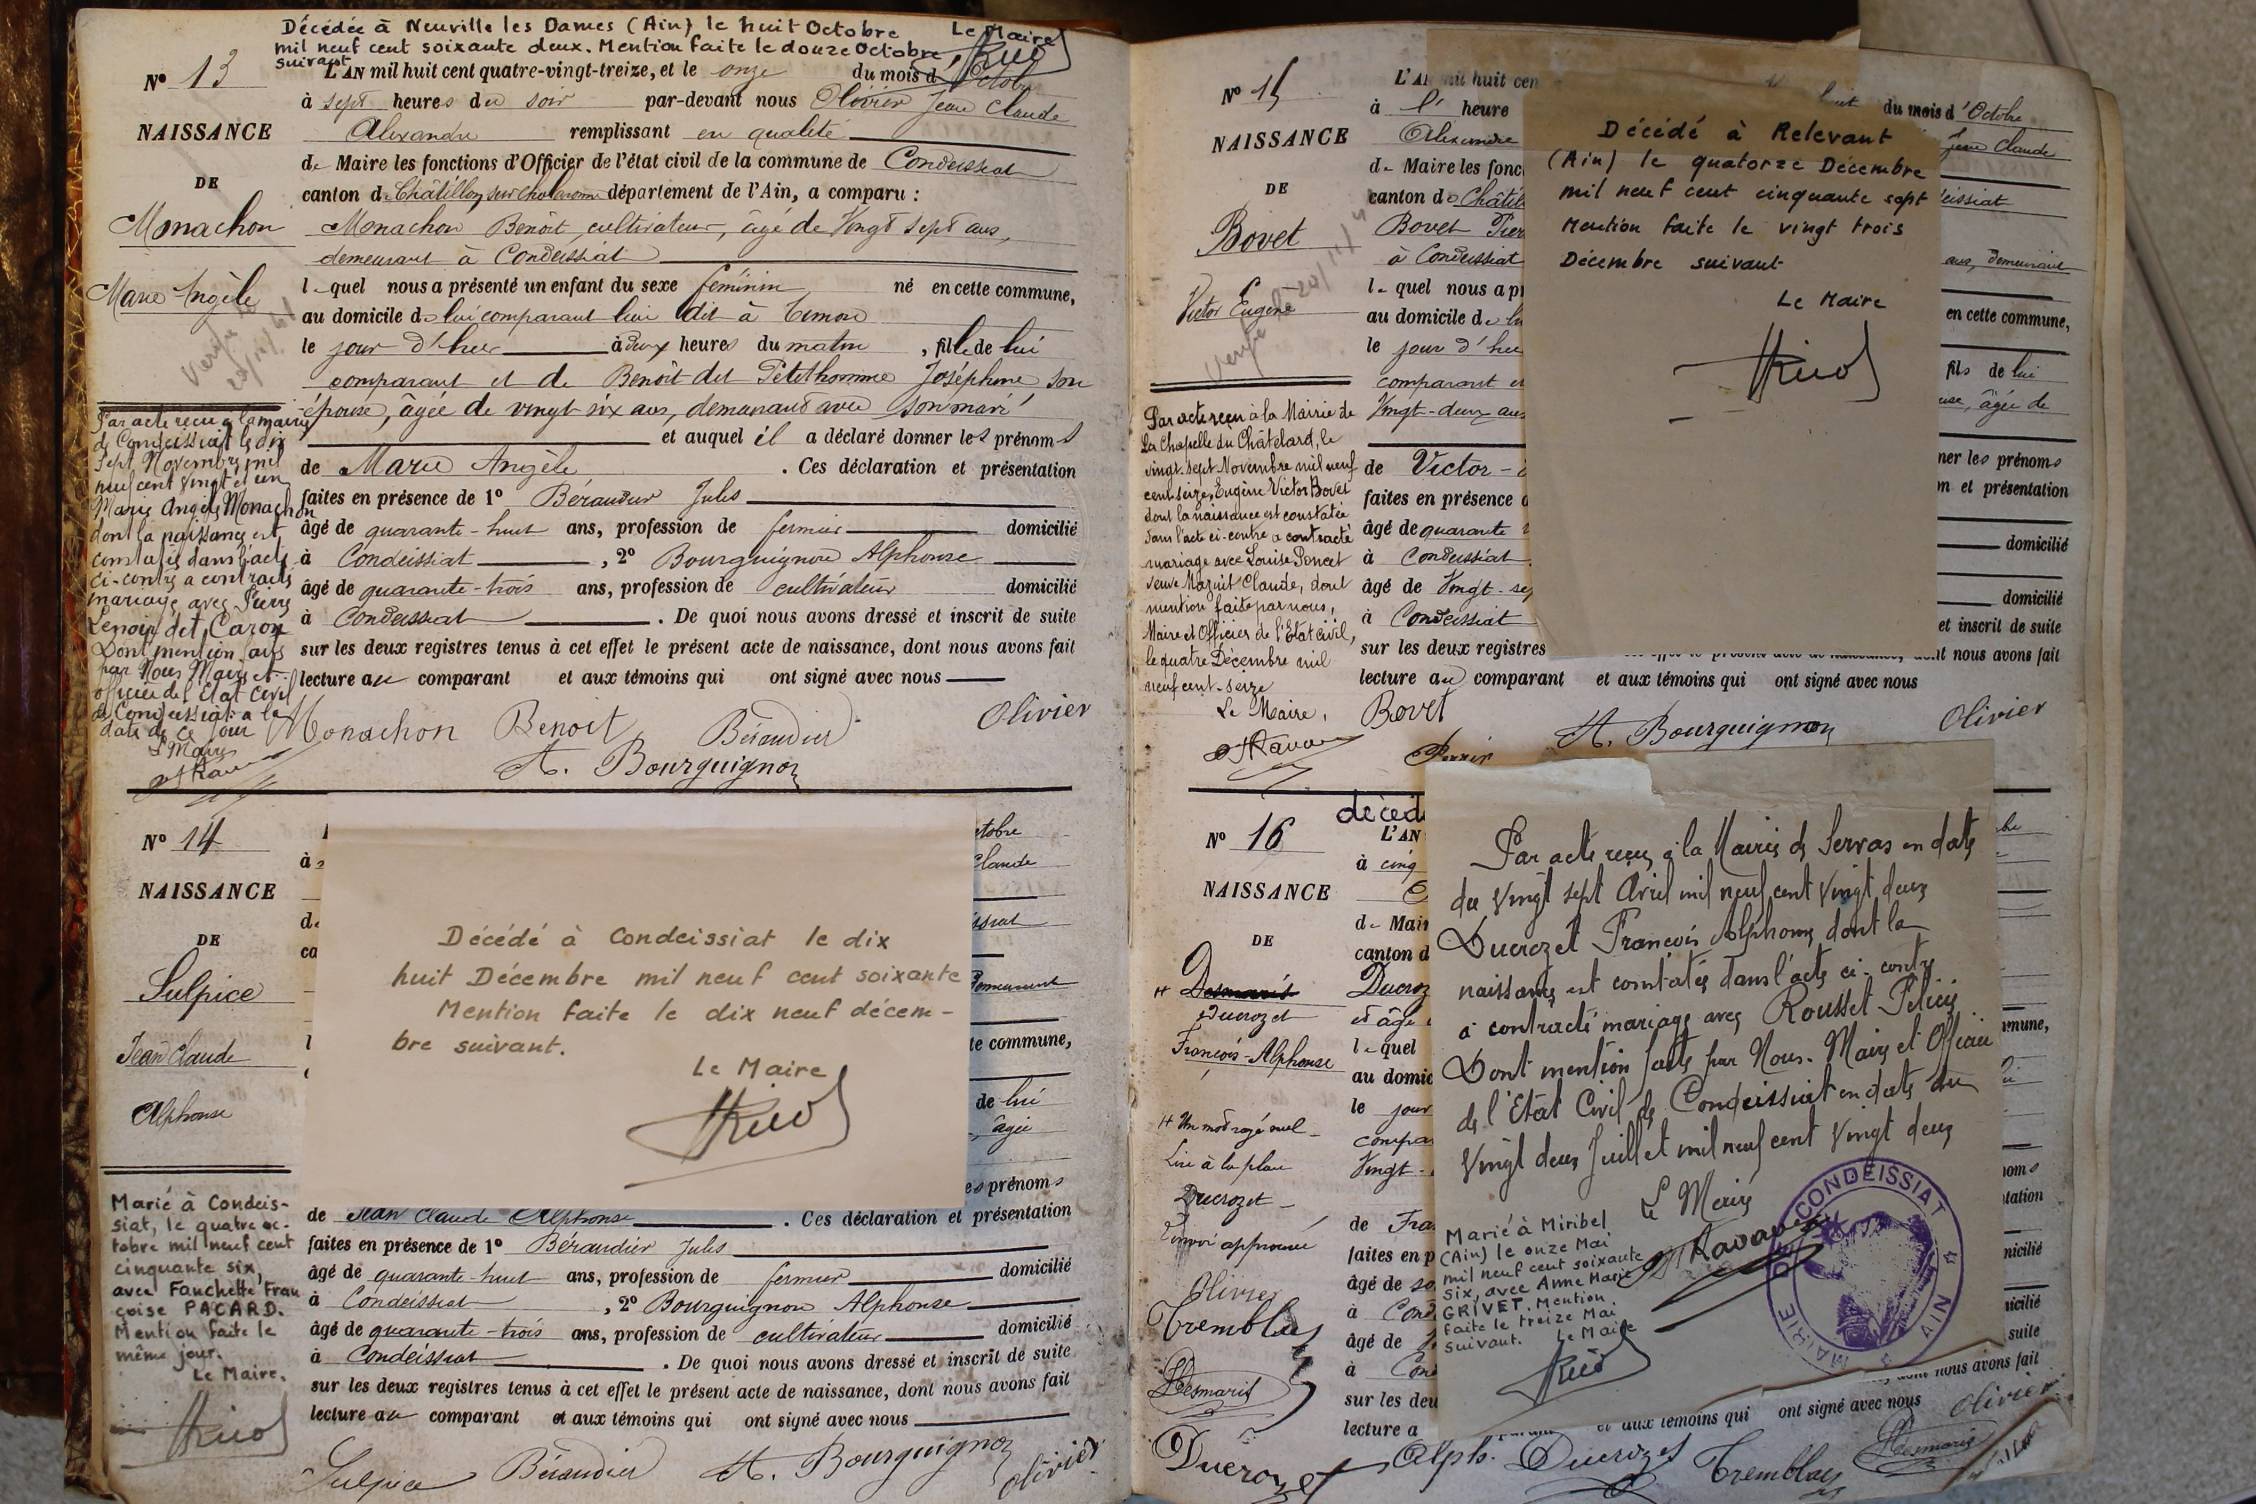 Décédée à Neuville les Dames (Ain) le huit Octobre Le Maire
mil neuf cent soixante deux. Mention faite le douze Octobre
suivant
Nº 13
NAISSANCE
DE
Monachon
Marie Angèle
L'AN mil huit cent quatre-vingt-treize, et le onze du mois d'Octobre
à sept heures du soir par-devant nous Olivier Jean Claude
Alexandre remplissant en qualité
de Maire les fonctions d'Officier de l'état civil de la commune de Condeissiat
canton de Châtillon sur Chalaronne département de l'Ain, a comparu :
Monachon Benoît, cultivateur, âgé de Vingt sept ans,
demeurant à Condeissiat
lequel nous a présenté un enfant du sexe féminin né en cette commune,
au domicile de lui comparant lieu dit à Timon
le jour d'hier à deux heures du matin, fille de lui
comparant et de Benoît dit Petethomme Joséphine son
épouse, âgée de vingt six ans, demeurant avec son mari
et auquel il a déclaré donner les prénoms
de Marie Angèle. Ces déclaration et présentation
faites en présence de 1º Béraudier Jules
âgé de quarante-huit ans, profession de fermier domicilié
à Condeissiat, 2º Bourguignon Alphonse
âgé de quarante-trois ans, profession de cultivateur domicilié
à Condeissiat. De quoi nous avons dressé et inscrit de suite
sur les deux registres tenus à cet effet le présent acte de naissance, dont nous avons fait
lecture au comparant et aux témoins qui ont signé avec nous
Monachon Benoit Béraudier Olivier
A. Bourguignon
Par acte reçu à la mairie
de Condeissiat le dix
sept Novembre mil
neuf cent vingt et un
Marie Angèle Monachon
dont la naissance est
constatée dans l'acte
ci-contre a contracté
mariage avec Pierre
Lenoir dit Caron
Dont mention faite
par Nous Maire et
officier de l'Etat Civil
de Condeissiat à la
date de ce jour
Le Maire
Nº 14
NAISSANCE
DE
Sulpice
Jean Claude
Alphonse
tobre
Claude
Décédé à Condeissiat le dix
huit Décembre mil neuf cent soixante
Mention faite le dix neuf décem-
bre suivant.
Le Maire
te commune,
de lui
âgée
es prénoms
de Jean Claude Alphonse. Ces déclaration et présentation
faites en présence de 1º Béraudier Jules
âgé de quarante-huit ans, profession de fermier domicilié
à Condeissiat, 2º Bourguignon Alphonse
âgé de quarante-trois ans, profession de cultivateur domicilié
à Condeissiat. De quoi nous avons dressé et inscrit de suite
sur les deux registres tenus à cet effet le présent acte de naissance, dont nous avons fait
lecture au comparant et aux témoins qui ont signé avec nous
Sulpice Béraudier A. Bourguignon Olivier
Marié à Condeis-
siat, le quatre oc-
tobre mil neuf cent
cinquante six,
avec Fanchette Fran
çoise PACARD.
Mention faite le
même jour.
Le Maire,
Nº 15
NAISSANCE
DE
Bovet
Victor Eugène
L'AN mil huit cen du mois d'Octobre
à heure
Alexandre Jean Claude
de Maire les fonc
canton de Châtil
Bovet Pier
à Condeissiat ans, demeurant
lequel nous a pr en cette commune,
au domicile de lu
le jour d'hie fils de lui
comparant et âgée de
Vingt-deux ans
ner les prénoms
de Victor n et présentation
faites en présence d
âgé de quarante domicilié
à Condeissiat
âgé de Vingt-sep domicilié
à Condeissiat et inscrit de suite
sur les deux registres nt nous avons fait
lecture au comparant et aux témoins qui ont signé avec nous
Bovet Perrin A. Bourguignon Olivier
Décédé à Relevant
(Ain) le quatorze Décembre
mil neuf cent cinquante sept
Mention faite le vingt trois
Décembre suivant
Le Maire
Par acte reçu à la Mairie de
La Chapelle du Châtelard, le
vingt-sept Novembre mil neuf
cent-seize, Eugène Victor Bovet
dont la naissance est constatée
dans l'acte ci-contre a contracté
mariage avec Louise Poncet
veuve Mazuit Claude, dont
mention faite par nous,
Maire et Officier de l'Etat Civil,
le quatre Décembre mil
neuf cent-seize
Le Maire,
Nº 16
NAISSANCE
DE
Desmaris
Ducrozet
François-Alphonse
Un mot rayé nul
Lire à la place
Ducrozet
Renvoi approuvé
Olivier
Tremblay
Desmaris
Ducrozet
décéd
L'AN
à cinq
de Mair
canton d
Ducroz
et âgé
lequel mmune,
au domic
le jour
compa
Vingt- noms
de Fra tation
faites en p micilié
âgé de so
à Cond icilié
âgé de
à Con suite
sur les deu nous avons fait
lecture a et aux témoins qui ont signé avec nous
Alph. Ducrozet Tremblay Desmaris Olivier
Par acte reçu à la Mairie de Servas en date
du vingt sept Avril mil neuf cent vingt deux
Ducrozet François Alphonse dont la
naissance est constatée dans l'acte ci-contre
a contracté mariage avec Rousset Félicie
Dont mention faite par Nous. Maire et Officier
de l'Etat Civil de Condeissiat en date du
vingt deux Juillet mil neuf cent vingt deux
Le Maire
Marié à Miribel
(Ain) le onze Mai
mil neuf cent soixante
six, avec Anne Marie
GRIVET. Mention
faite le treize Mai
suivant. Le Maire
MAIRIE DE CONDEISSIAT AIN